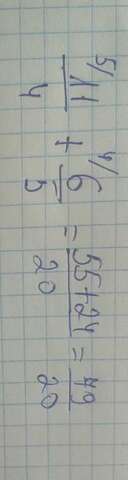 5/ 11/4 + 4/ 6/5 = 55+24/20 = 79/20